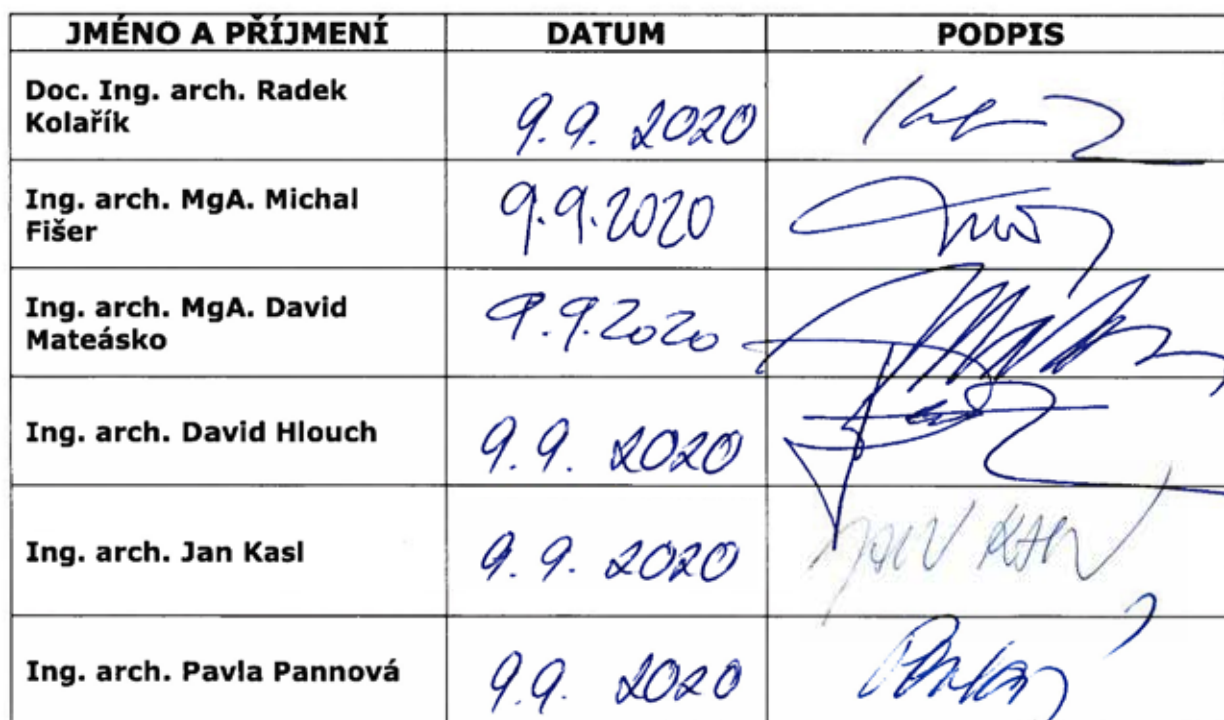 JMÉNO A PŘÍJMENÍ DATUM PODPIS
Doc. Ing. arch. Radek
Kolařík
9.9. 2020
Ing. arch. MgA. Michal
Fišer
9.9.2020
Ing. arch. MgA. David
Mateásko
9.9.2020
Ing. arch. David Hlouch 9.9. 2020
Ing. arch. Jan Kasl 9.9. 2020
Ing. arch. Pavla Pannová 9.9. 2020